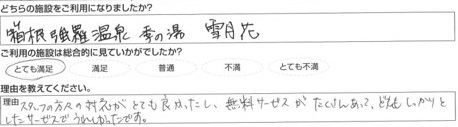 どちらの施設をご利用になりましたか?
箱根強羅温泉 季の湯 雪月花
ご利用の施設は総合的に見ていかがでしたか?
とても満足 満足 普通 不満 とても不満
理由を教えてください。
理由 スタッフの方々の対応がとても良かったし、無料サービスがたくさんあって、どれもしっかりと
したサービスでうれしかったです。